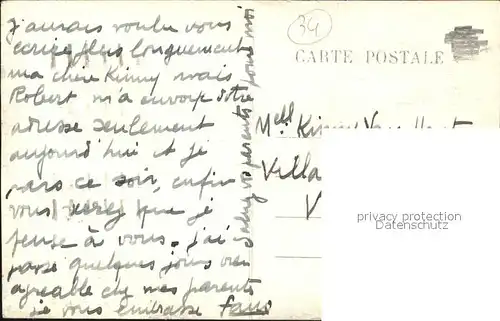 J'aurais voulu vous
écrire plus longuement
ma chère Kinny mais
Robert m'a envoyé votre
adresse seulement
aujourd'hui et je
pars ce soir, enfin
vous verrez que je
pense à vous. J'ai
passé quelques jours bien
agréable chez mes parents
je vous embrasse
vos parents pour moi
34
CARTE POSTALE
Melle Kinny
Villa
V
privacy protection
Datenschutz